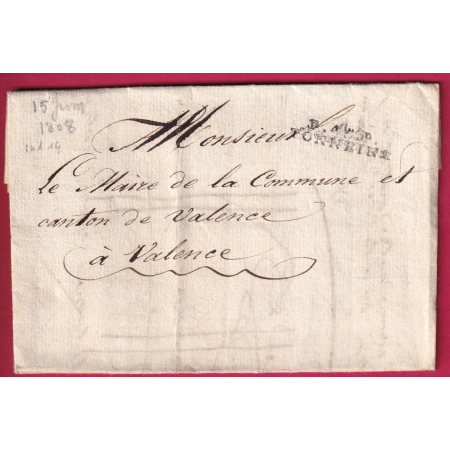 15 Juin
1808
ind 14
Monsieur
TONNEINS
Le Maire de la Commune et
canton de Valence
à Valence